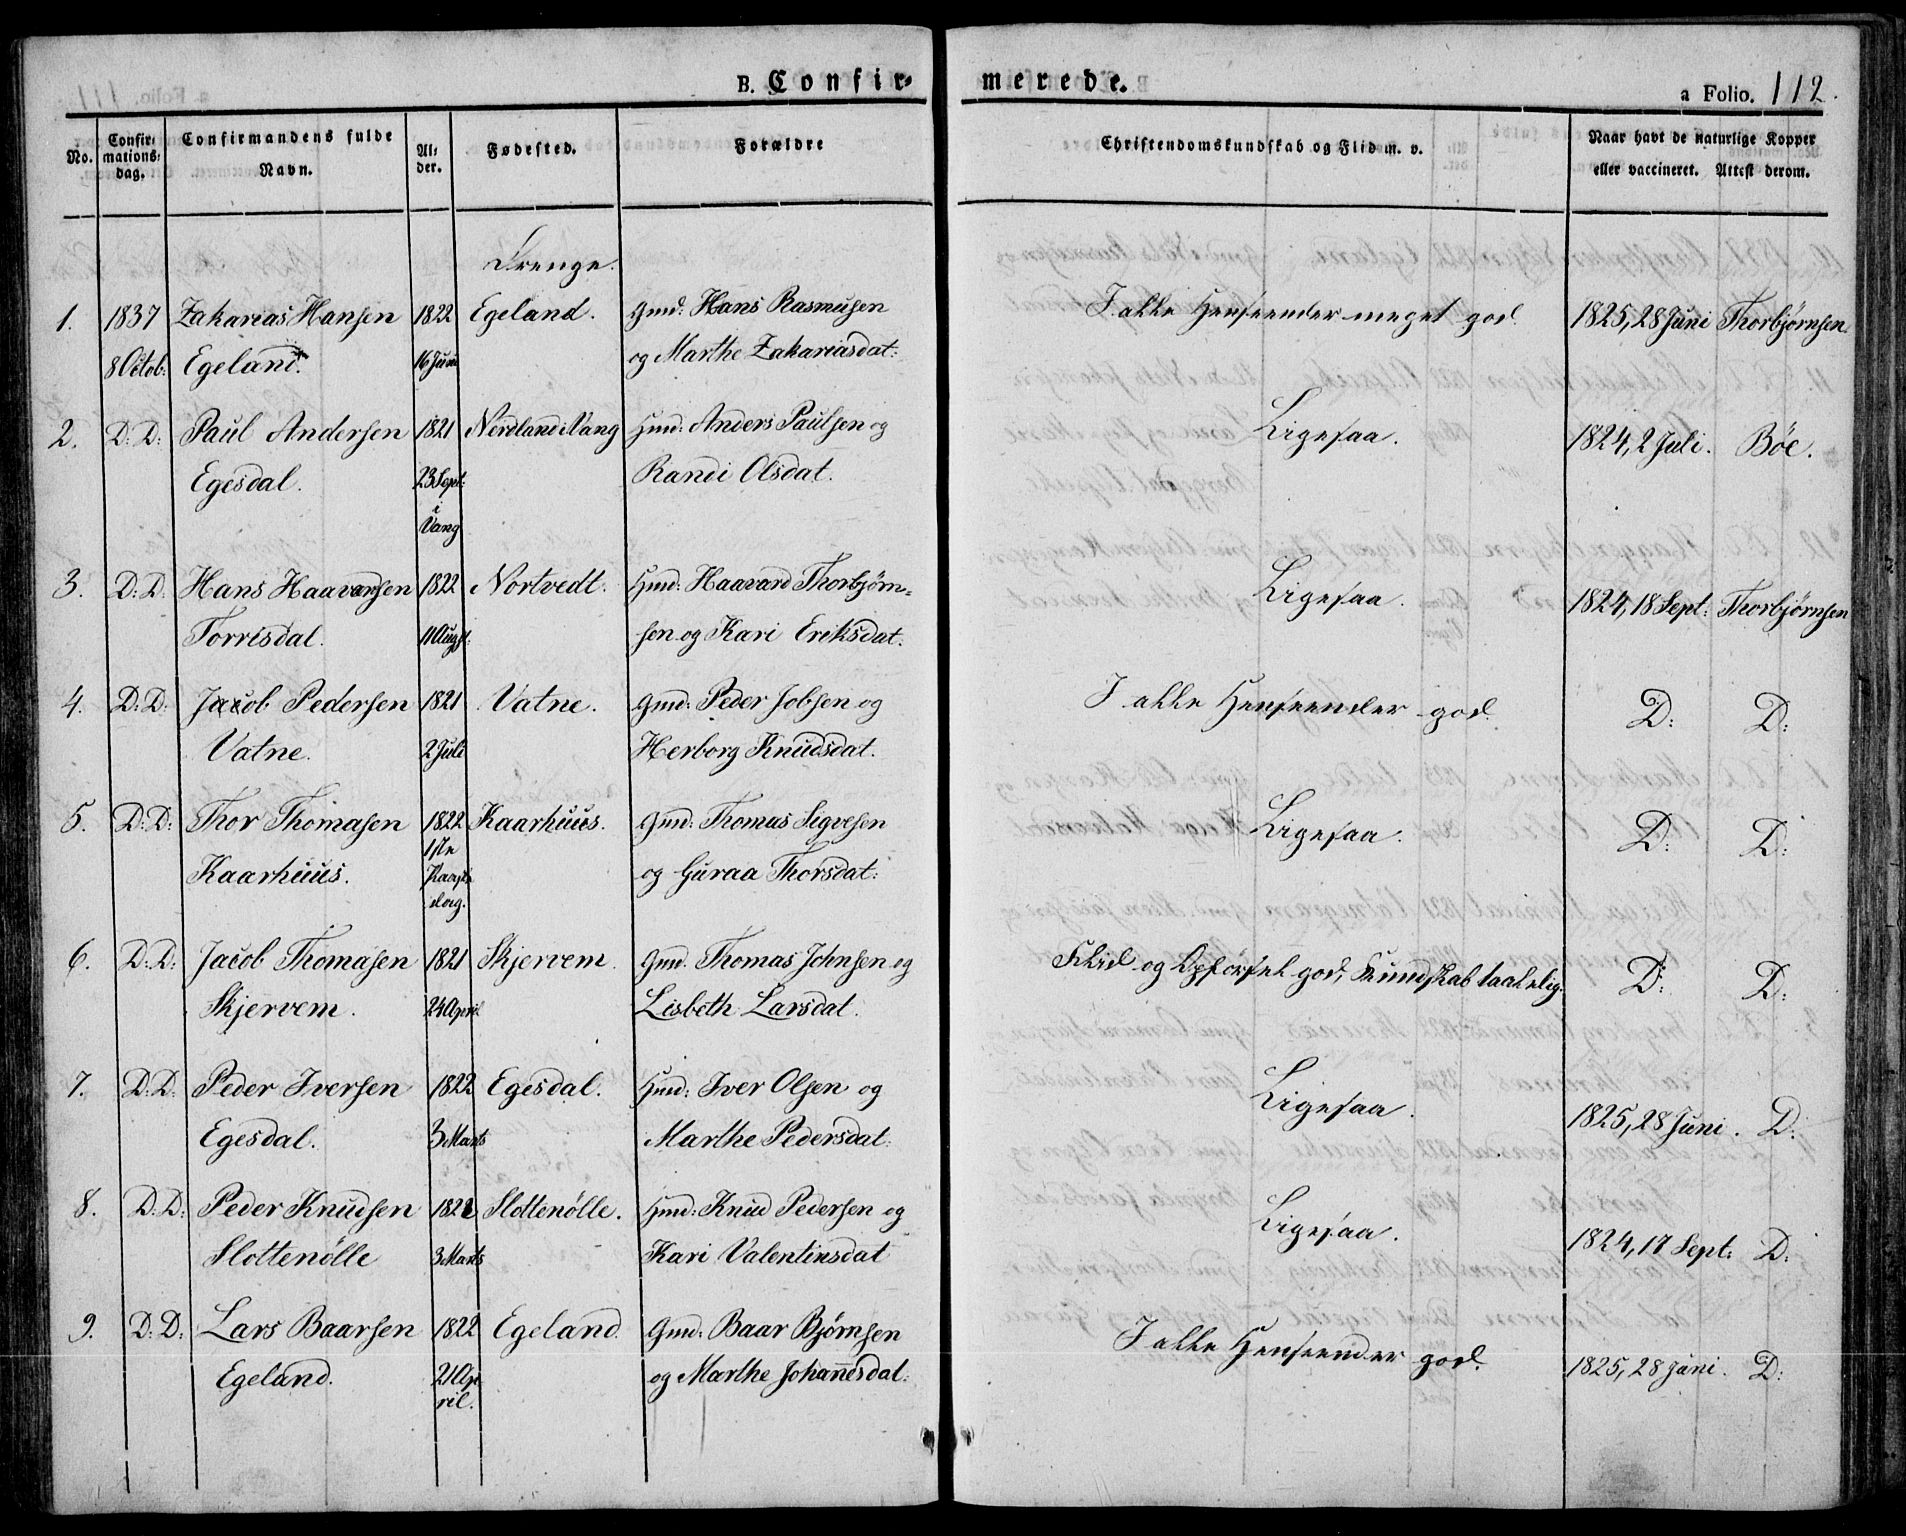 B. Confir- merede.
a Folio. 112.
No. Confirmations-dag. Confirmandens fulde Navn. Alder. Fødested. Forældre Christendomskundskab og Flid m. v. Naar havt de naturlige Kopper eller vaccineret. Attest derom.
Drenge.
1. 1837 Zakarias Hansen 1822 Egeland. Gmd: Hans Rasmusen I alle Henseender meget god. 1825, 28 Juni Thorbjørnsen
8 Octob: Egeland. 16 Juni og Marthe Zakariasdat:
2. D: D: Paul Andersen 1821 Nordland i Vang Hmd: Anders Paulsen og Ligesaa. 1824, 2 Juli. Böe.
Egesdal. 23 Sept: Randi Olsdat.
i
Vang
3. D: D: Hans Haavorsen 1822 Nortvedt. Hmd: Haavard Thorbjørn- Ligesaa. 1824, 18 Sept: Thorbjørnsen
Torrisdal. 11 Augst: sen og Kari Eriksdat:
4. D: D: Jacob Pedersen 1821 Vatne. Gmd: Peder Jobsen og I alle Henseender god. D: D:
Vatne. 2 Juli Herborg Knudsdat.
5. D: D: Thor Thomasen 1822 Kaarhuus. Gmd: Thomas Sigvesen Ligesaa. D: D:
Kaarhuus. 1ste og Guraa Thorsdat:
dag.
6. D: D: Jacob Thomasen 1821 Skjervem. Gmd. Thomas Johnsen og Flid og Opførsel god, Kundskab taalelig. D: D:
Skjervem. 24 April Lisbeth Larsdat.
7. D: D: Peder Iversen 1822 Egesdal. Hmd: Iver Olsen og Ligesaa. 1825, 28 Juni. D:
Egesdal. 3 Marts Marthe Pedersdat:
8. D: D: Peder Knudsen 1822 Slottenølle. Hmd: Knud Pedersen og Ligesaa. 1824, 17 Sept: D:
Slottenølle 3 Marts Kari Valentinsdat
9. D: D: Lars Baarsen 1822 Egeland. Gmd: Baar Bjørnsen I alle Henseender god. 1825, 28 Juni. D:
Egeland. 21 Ap- og Marthe Johannesdat:
ril.